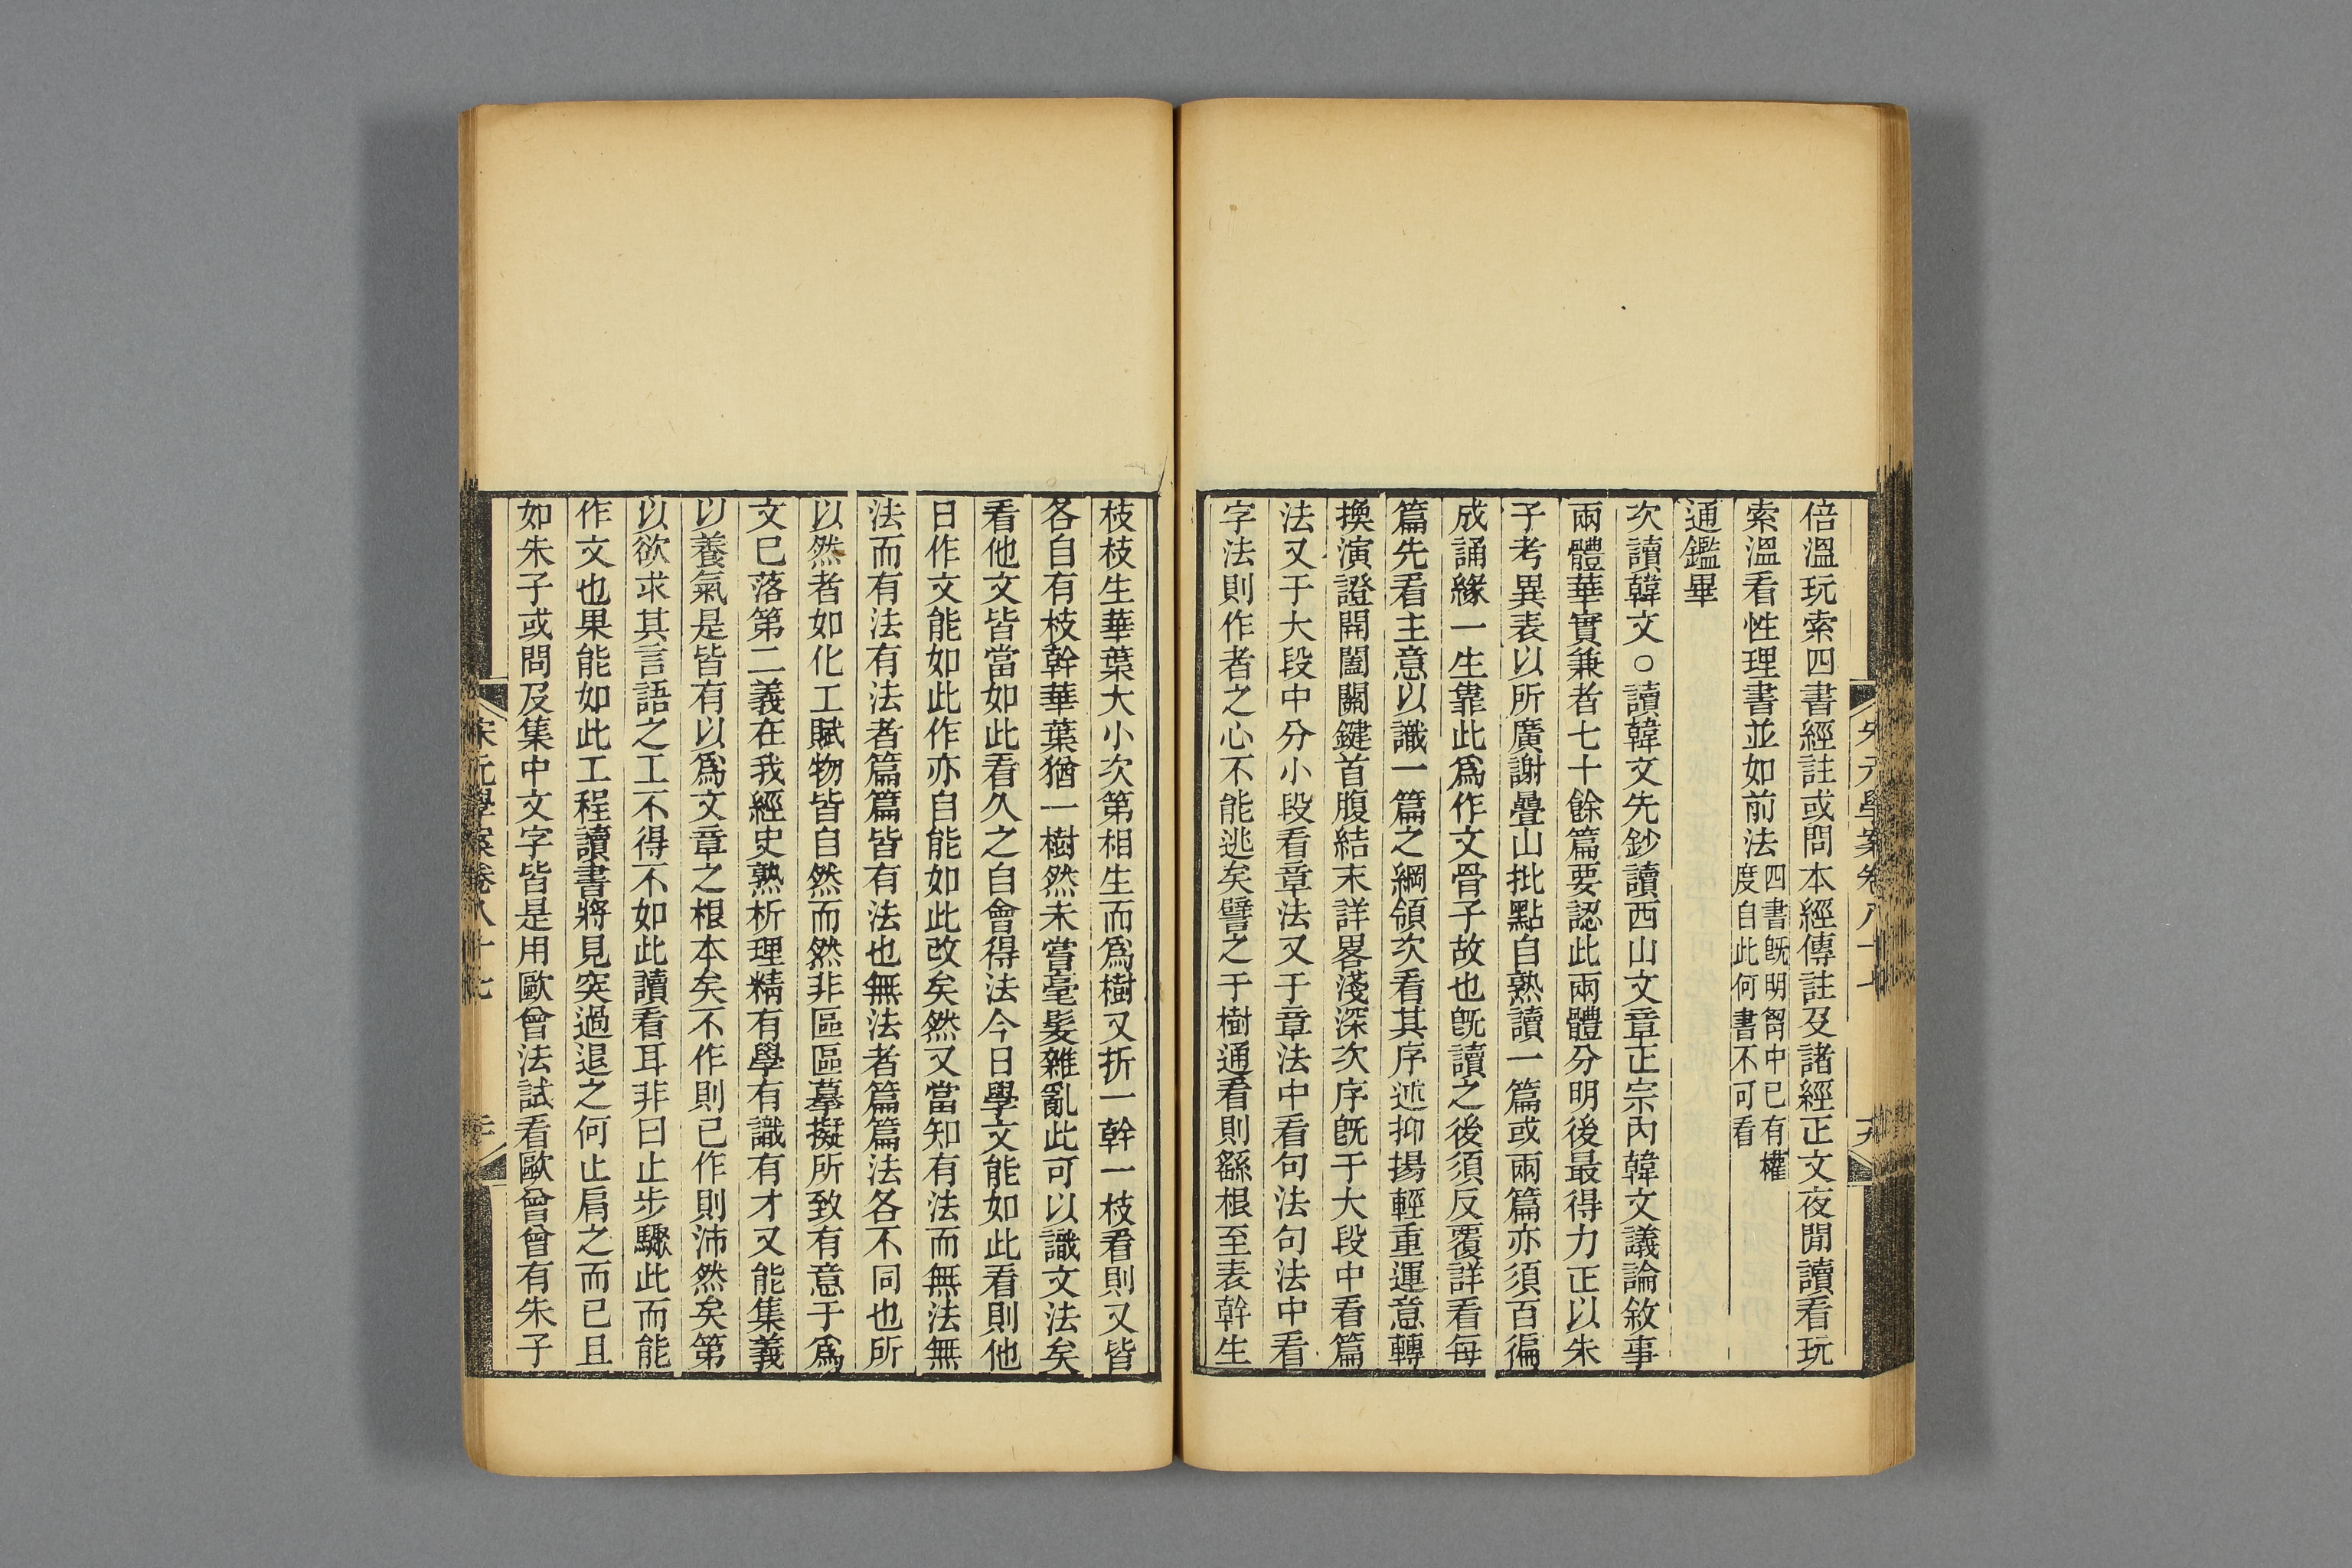 倍溫玩索四書經註或問本經傳註及諸經正文夜閒讀看玩
索溫看性理書並如前法四書既明胷中已有權度自此何書不可看
通鑑畢
次讀韓文○讀韓文先鈔讀西山文章正宗內韓文議論敘事
兩體華實兼者七十餘篇要認此兩體分明後最得力正以朱
子考異表以所廣謝疊山批點自熟讀一篇或兩篇亦須百徧
成誦緣一生靠此爲作文骨子故也既讀之後須反覆詳看每
篇先看主意以識一篇之綱領次看其序述抑揚輕重運意轉
換演證開闔關鍵首腹結末詳畧淺深次序既于大段中看篇
法又于大段中分小段看章法又于章法中看句法句法中看
字法則作者之心不能逃矣譬之于樹通看則繇根至表幹生
枝枝生華葉大小次第相生而爲樹又折一幹一枝看則又皆
各自有枝幹華葉猶一樹然未嘗毫髮雜亂此可以識文法矣
看他文皆當如此看久之自會得法今日學文能如此看則他
日作文能如此作亦自能如此改矣然又當知有法而無法無
法而有法有法者篇篇皆有法也無法者篇篇法各不同也所
以然者如化工賦物皆自然而然非區區摹擬所致有意于爲
文已落第二義在我經史熟析理精有學有識有才又能集義
以養氣是皆有以爲文章之根本矣不作則已作則沛然矣第
以欲求其言語之工不得不如此讀看耳非曰止步驟此而能
作文也果能如此工程讀書將見突過退之何止肩之而已且
如朱子或問及集中文字皆是用歐曾法試看歐曾曾有朱子
宋元學案卷八十七